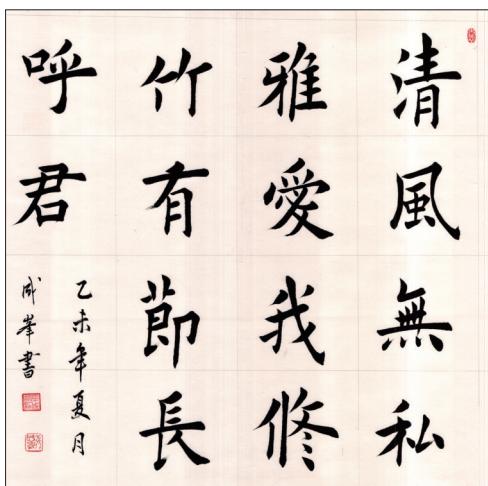 清風無私
雅愛我修
竹有節長
呼君
乙未年夏月
峯書